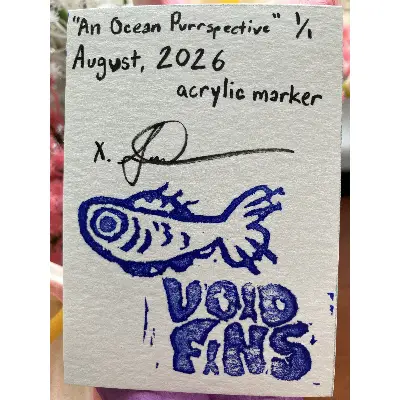 "An Ocean Purrspective" 1/1
August, 2026
acrylic marker
X.
VOID
FINS